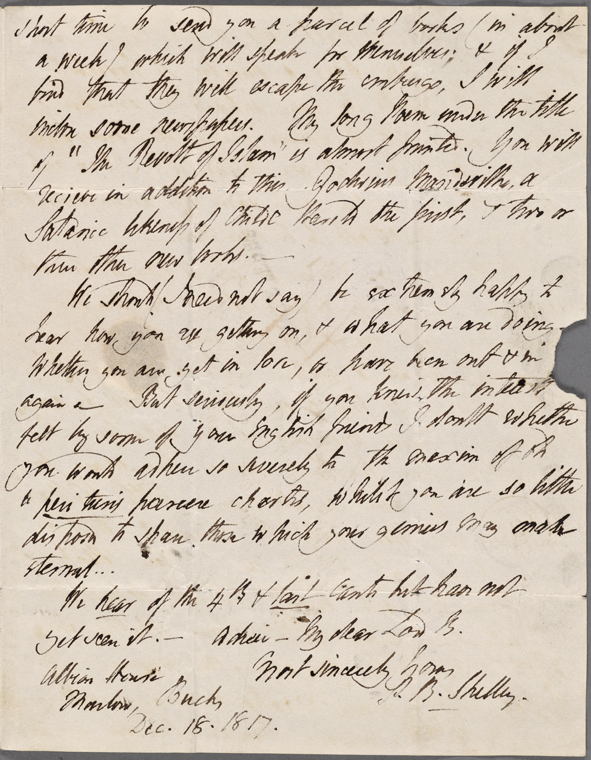 short time to send you a parcel of books (in about
a week) which will speak for themselves; & if I
find that they will escape the embargo, I will
inclose some newspapers. My long Poem under the title
of "The Revolt of Islam" is almost printed. You will
recieve in addition to this, Godwins Mandeville, a
Satanic likeness of Childe Harold the first, & two or
three other new books. —
We should (I need not say) be extremely happy to
hear how you are getting on, & what you are doing.
Whether you are yet in love, or have been out & in
again — But seriously, if you knew the interest
felt by some of your English friends I doubt whether
you would adhere so severely to the maxim of
" parcere chartis, whilst you are so little
disposed to spare those which your genius may make
eternal...
We hear of the 4th & last Canto but have not
yet seen it. — Adieu — My dear Lord B.
Albion House Most sincerely Yours
Marlow, Bucks P. B. Shelley.
Dec. 18. 1817.